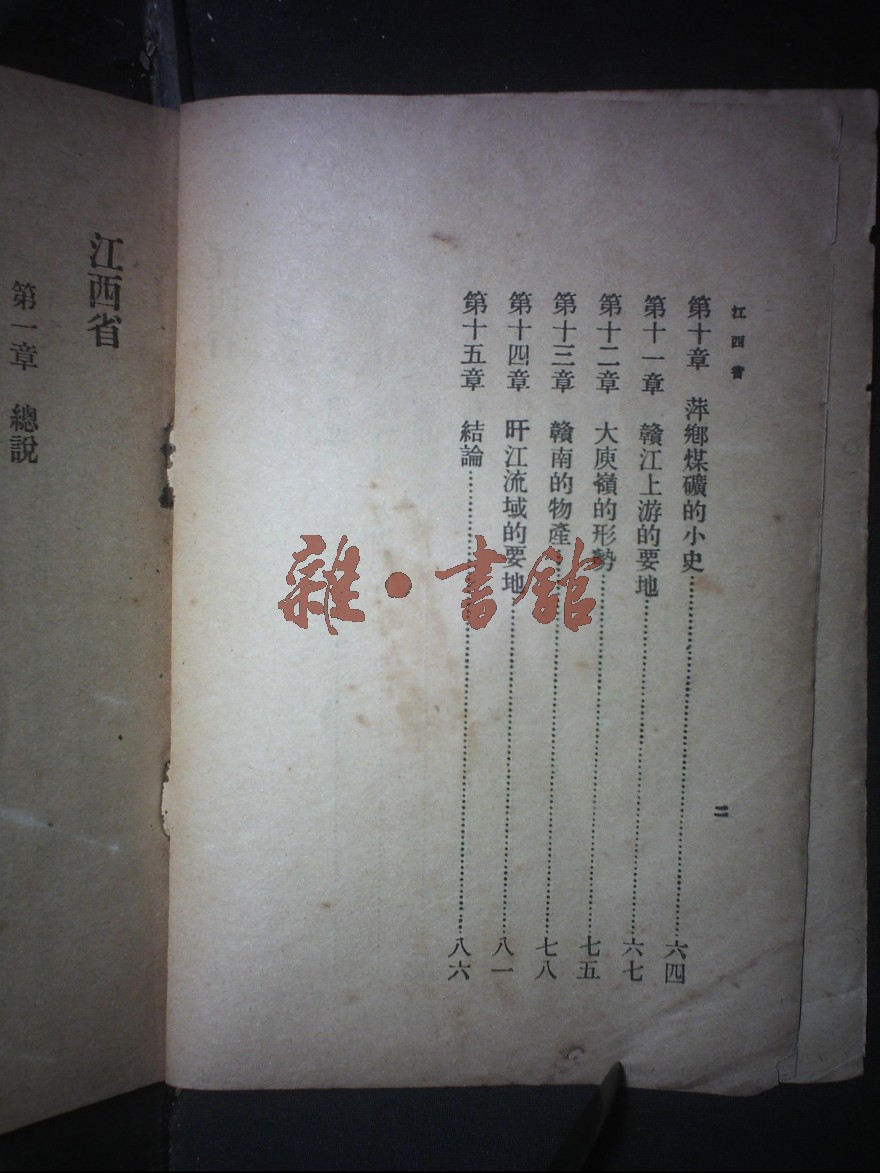 江西省
第十章 萍鄉煤礦的小史……六四
第十一章 贛江上游的要地……六七
第十二章 大庾嶺的形勢……七五
第十三章 贛南的物產……七八
第十四章 旴江流域的要地……八一
第十五章 結論……八六
二
江西省
第一章 總說
雜·書館